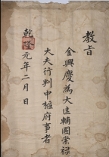 教旨
金興慶為大匡輔國崇祿
大夫行判中樞府事者
乾隆元年二月日